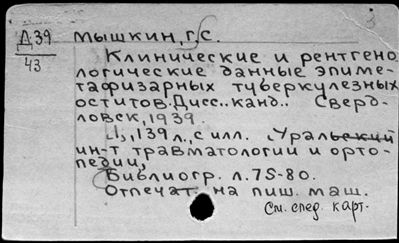 Д39
43
Мышкин, Г.С.
Клинические и рентгено
логические данные эпиме-
тафизарных туберкулезных
оститов. Дисс.. канд.. Сверд-
ловск, 1939.
139 л., с илл. Уральский
ин-т травматологии и орто-
педии,
Библиогр. л. 75-80.
Отпечат. на пиш. маш.
См. след. карт.